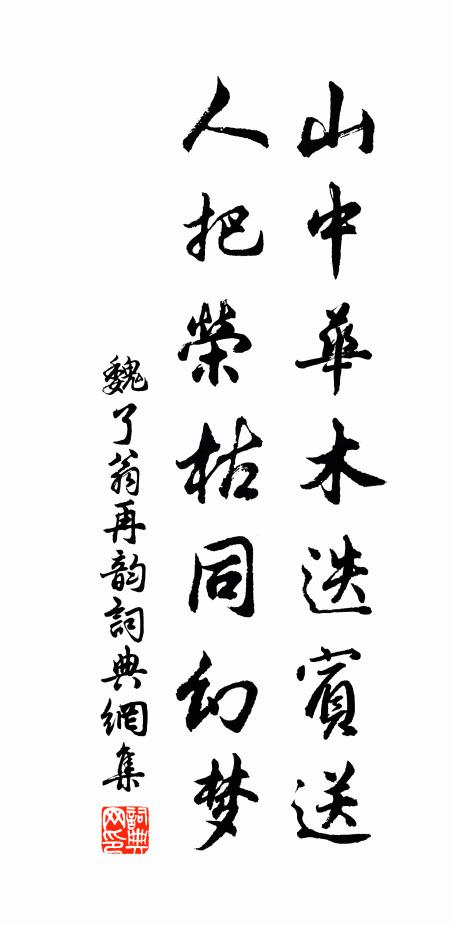 山中華木迭賓送
人把榮枯同幻梦
魏了翁再韵詞典網集
詞典网印